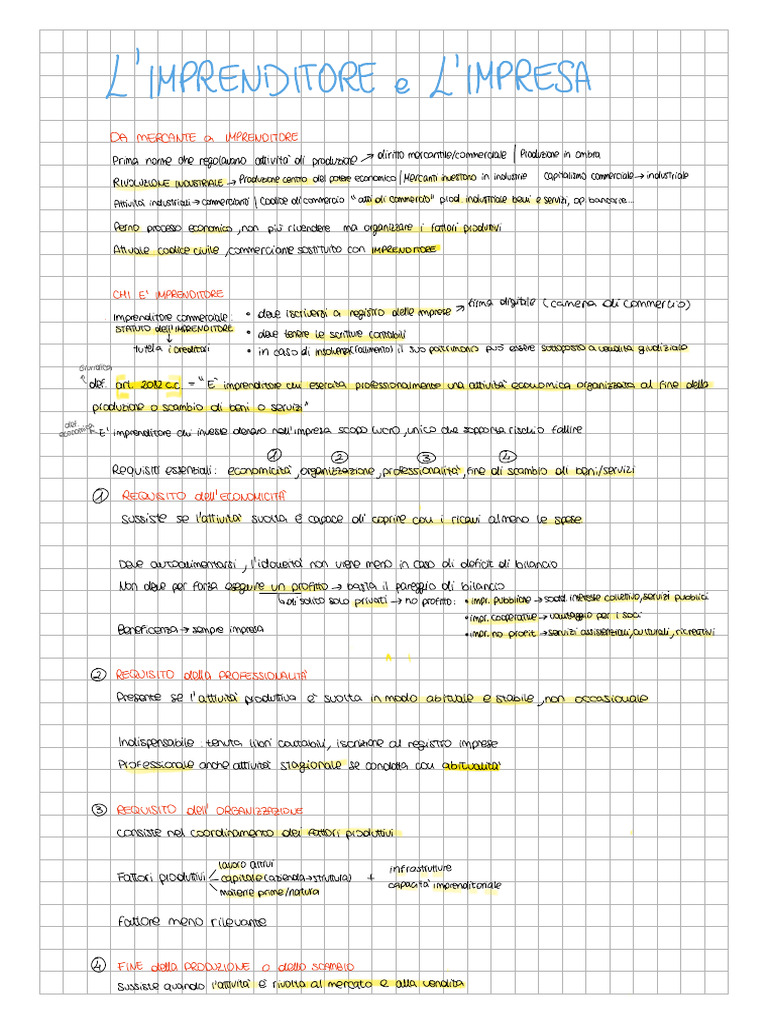 L'IMPRENDITORE e L'IMPRESA
DA MERCANTE a IMPRENDITORE
Prima norme che regolavano attività di produzione → diritto mercantile/commerciale | Produzione in ombra
RIVOLUZIONE INDUSTRIALE → Produzione centro del potere economico | Mercanti investono in industrie capitalismo commerciale → industriale
Attività industriali → commercianti | Codice di commercio "atti di commercio" prod. industriale beni e servizi, op. bancarie...
Perno processo economico, non più rivendere ma organizzare i fattori produttivi
Attuale codice civile, commerciante sostituito con IMPRENDITORE
CHI E' IMPRENDITORE
Imprenditore commerciale: • deve iscriversi a registro delle imprese → firma digitale (camera di commercio)
STATUTO dell'IMPRENDITORE • deve tenere le scritture contabili
tutela i creditori • in caso di insolvenza (fallimento) il suo patrimonio può essere sottoposto a vendita giudiziale
Giuridica
def. art. 2082 c.c = "E' imprenditore chi esercita professionalmente una attività economica organizzata al fine della
produzione o scambio di beni o servizi"
def. economica E' imprenditore chi investe denaro nell'impresa scopo lucro, unico che sopporta rischio fallire
① ② ③ ④
Requisiti essenziali: economicità, organizzazione, professionalità, fine di scambio di beni/servizi
① REQUISITO dell'ECONOMICITÀ
Sussiste se l'attività svolta è capace di coprire con i ricavi almeno le spese
Deve autoalimentarsi, l'idoneità non viene meno in caso di deficit di bilancio
Non deve per forza eseguire un profitto → basta il pareggio di bilancio
↳ di solito solo privati → no profitto: • impr. pubbliche → sodd. interesse collettivo, servizi pubblici
• impr. cooperative → vantaggio per i soci
Beneficenza → sempre impresa • impr. no profit → servizi assistenziali, culturali, ricreativi
② REQUISITO della PROFESSIONALITA'
Presente se l'attività produttiva è svolta in modo abituale e stabile, non occasionale
Indispensabile: tenuta libri contabili, iscrizione al registro imprese
Professionale anche attività stagionale se condotta con abitualità
③ REQUISITO dell'ORGANIZZAZIONE
consiste nel coordinamento dei fattori produttivi
lavoro altrui infrastrutture
Fattori produttivi capitale (azienda → struttura) +
materie prime/natura capacità imprenditoriale
Fattore meno rilevante
④ FINE della PRODUZIONE o dello SCAMBIO
Sussiste quando l'attività è rivolta al mercato e alla vendita